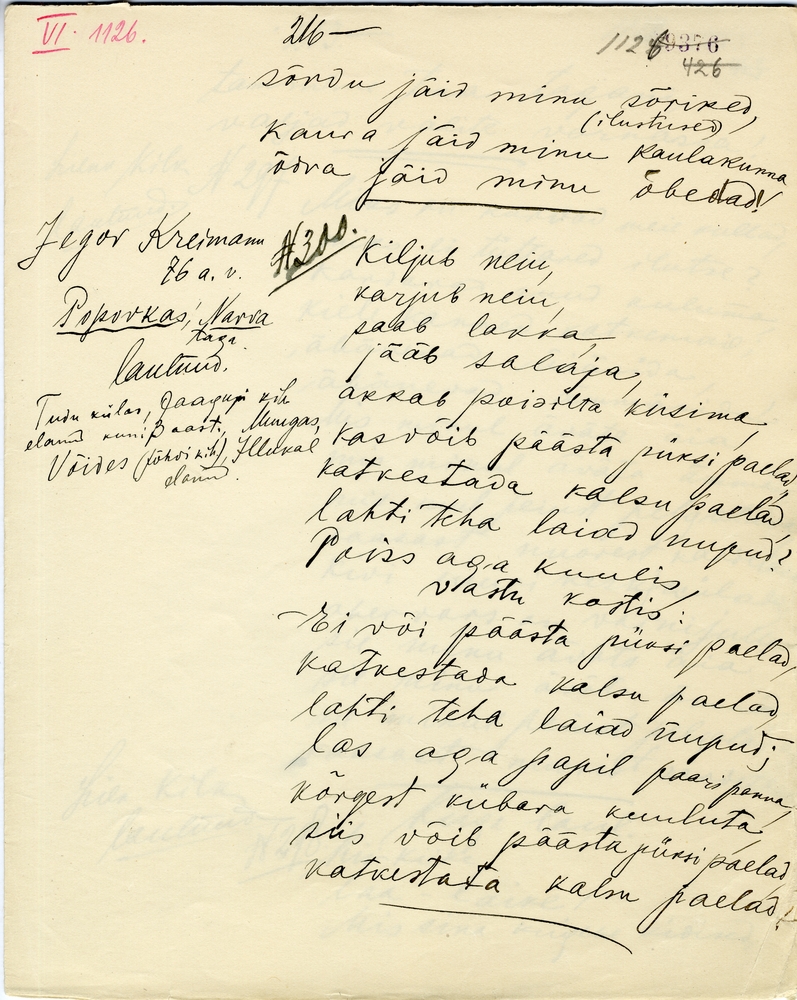 VI. 1126.
216 —
1126 9376
426
sõrdu jäid minu sõriked,
(ilustused)
kaura jäid minu kaulakunna
õdva jäid minu õbedad!
Jegor Kreimann
76 a. v.
Popovkas, Narva
taga
lautnud.
Tudu külas, Jaagupi kih
elanud kuni aast., Mungas,
Võides (Jõhvi kih), Illukal
elanud.
№ 300.
Kiljub neiu,
karjub neiu,
saab lakka,
jääb salaja,
akkab poisilta küsima,
kas võib päästa püksi paelad,
katkestada kalsu paelad,
lahti teha laiad nupud?
Poiss aga kuulis,
vastu kostis:
— Ei või päästa püksi paelad,
katkestada kalsu paelad,
lahti teha laiad nupud;
las aga papil paari panna,
kõrgest kübara kuuluta,
siis võib päästa püksi paelad
katkestata kalsu paelad!